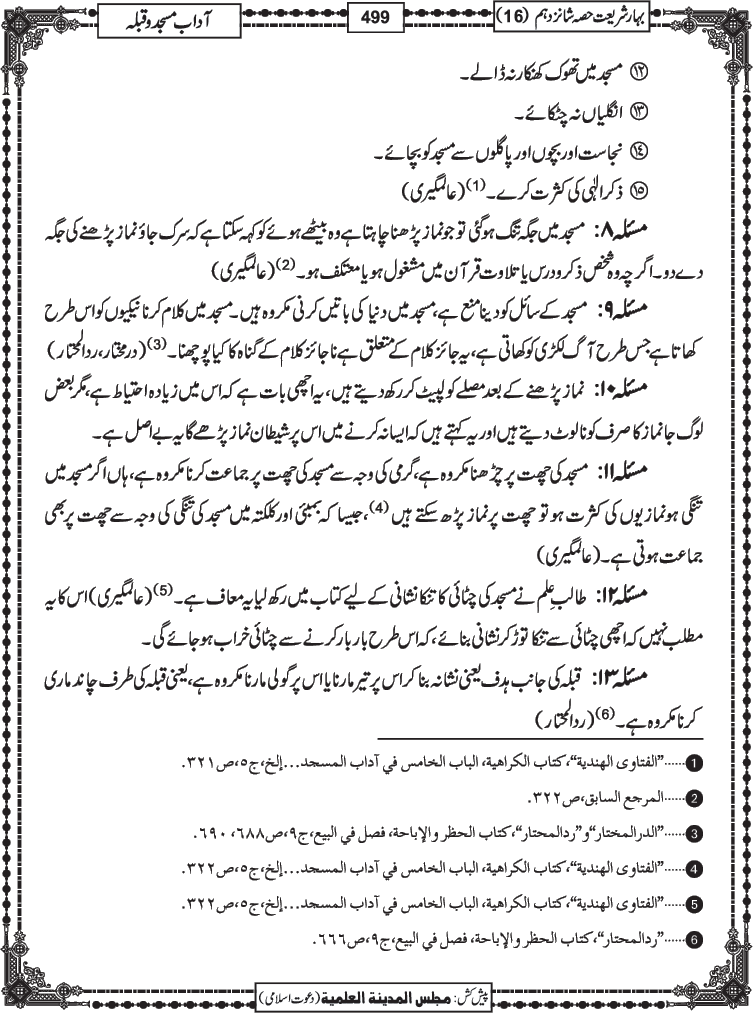 بہار شریعت حصہ شانزدہم (16)
499
آداب مسجد و قبلہ
⑫ مسجد میں تھوک کھنکار نہ ڈالے۔
⑬ انگلیاں نہ چٹکائے۔
⑭ نجاست اور بچوں اور پاگلوں سے مسجد کو بچائے۔
⑮ ذکر الٰہی کی کثرت کرے۔(1) (عالمگیری)
مسئلہ ۸: مسجد میں جگہ تنگ ہوگئی تو جو نماز پڑھنا چاہتا ہے وہ بیٹھے ہوئے کو کہہ سکتا ہے کہ سرک جاؤ نماز پڑھنے کی جگہ
دے دو۔ اگرچہ وہ شخص ذکر و درس یا تلاوت قرآن میں مشغول ہو یا معتکف ہو۔(2) (عالمگیری)
مسئلہ ۹: مسجد کے سائل کو دینا منع ہے، مسجد میں دنیا کی باتیں کرنی مکروہ ہیں۔ مسجد میں کلام کرنا نیکیوں کو اس طرح
کھاتا ہے جس طرح آگ لکڑی کو کھاتی ہے، یہ جائز کلام کے متعلق ہے ناجائز کلام کے گناہ کا کیا پوچھنا۔(3) (درمختار، ردالمحتار)
مسئلہ ۱۰: نماز پڑھنے کے بعد مصلے کو لپیٹ کر رکھ دیتے ہیں، یہ اچھی بات ہے کہ اس میں زیادہ احتیاط ہے، مگر بعض
لوگ جانماز کا صرف کونا لوٹ دیتے ہیں اور یہ کہتے ہیں کہ ایسا نہ کرنے میں اس پر شیطان نماز پڑھے گا یہ بے اصل ہے۔
مسئلہ ۱۱: مسجد کی چھت پر چڑھنا مکروہ ہے، گرمی کی وجہ سے مسجد کی چھت پر جماعت کرنا مکروہ ہے، ہاں اگر مسجد میں
تنگی ہو نمازیوں کی کثرت ہو تو چھت پر نماز پڑھ سکتے ہیں (4)، جیسا کہ بمبئی اور کلکتہ میں مسجد کی تنگی کی وجہ سے چھت پر بھی
جماعت ہوتی ہے۔ (عالمگیری)
مسئلہ ۱۲: طالب علم نے مسجد کی چٹائی کا تنکا نشانی کے لیے کتاب میں رکھ لیا یہ معاف ہے۔(5) (عالمگیری) اس کا یہ
مطلب نہیں کہ اچھی چٹائی سے تنکا توڑ کر نشانی بنائے، کہ اس طرح بار بار کرنے سے چٹائی خراب ہو جائے گی۔
مسئلہ ۱۳: قبلہ کی جانب ہدف یعنی نشانہ بنا کر اس پر تیر مارنا یا اس پر گولی مارنا مکروہ ہے، یعنی قبلہ کی طرف چاند ماری
کرنا مکروہ ہے۔(6) (ردالمحتار)
1 ......"الفتاوی الهندية"، کتاب الکراهية، الباب الخامس في آداب المسجد...إلخ، ج۵، ص۳۲۱.
2 ......المرجع السابق، ص۳۲۲.
3 ......"الدرالمختار" و "ردالمحتار"، کتاب الحظر والإباحة، فصل في البيع، ج۹، ص۶۸۸، ۶۹۰.
4 ......"الفتاوی الهندية"، کتاب الکراهية، الباب الخامس في آداب المسجد...إلخ، ج۵، ص۳۲۲.
5 ......"الفتاوی الهندية"، کتاب الکراهية، الباب الخامس في آداب المسجد...إلخ، ج۵، ص۳۲۲.
6 ......"ردالمحتار"، کتاب الحظر والإباحة، فصل في البيع، ج۹، ص۶۶۶.
پیش کش: مجلس المدينة العلمية (دعوت اسلامی)